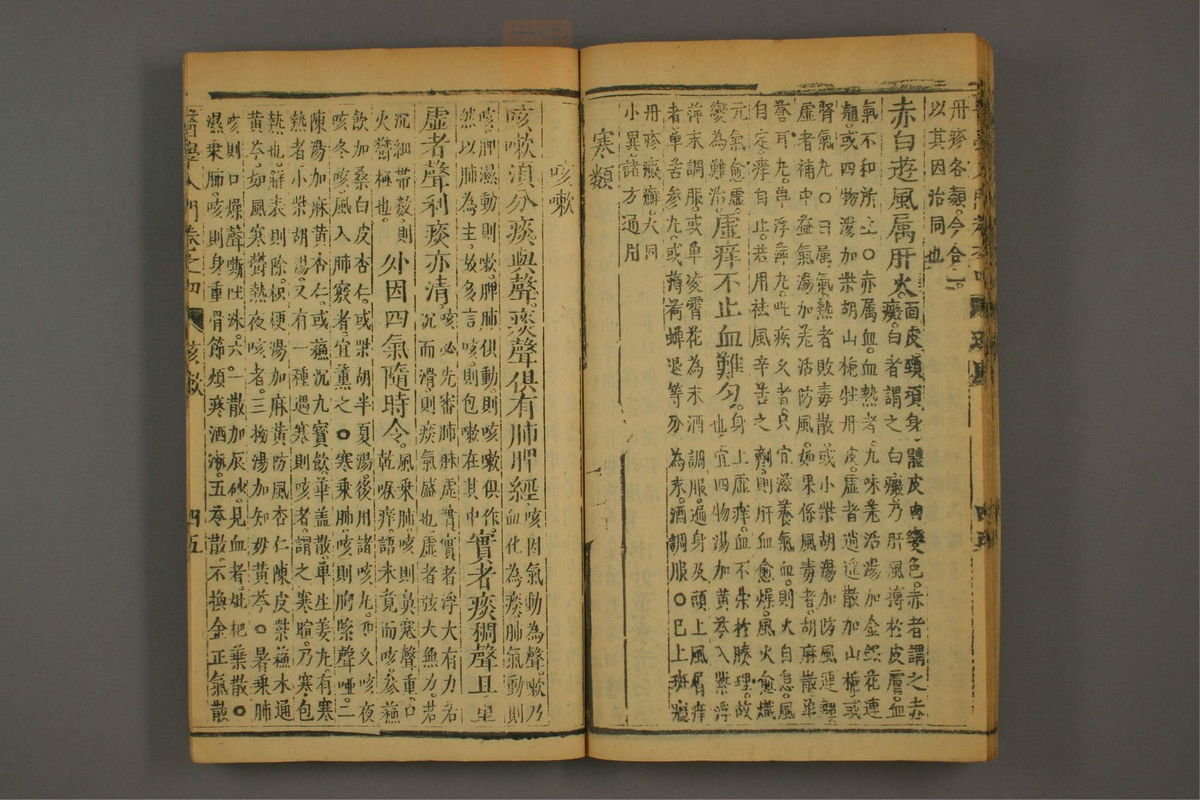 丹疹各類。今合一
以其因治同也
赤白遊風属肝火。面皮頭項身體皮肉變色。赤者謂之赤
癜。白者謂之白癜。乃肝風摶於皮層。血
氣不和所主。○赤属血。血熱者。九味羌活湯加金銀花連
翹。或四物湯加柴胡山梔牡丹皮。虛者逍遙散加山梔。或
腎氣丸。○白属氣。熱者敗毒散。或小柴胡湯加防風連翹。
虛者補中益氣湯加羌活防風。如果係風毒者。胡麻散。單
苍耳丸。單浮萍丸。此疾久者。只宜滋養氣血。則火自息。風
自定。痒自止。若用祛風辛苦之劑。則肝血愈燥。風火愈熾
元氣愈虛。
變為難治。虛痒不止血難勻。身上虛痒。血不榮於腠理。故
也。宜四物湯加黃芩。入紫浮
萍末調服。或單凌霄花為末。酒調服。遍身及頭上風屑痒
者。單苦參丸。或薄荷蟬退等分為末。酒調服。○已上斑癮
丹疹癜癬大同
小異。諸方通用
寒類
咳嗽
咳嗽湏分痰與聲。痰聲俱有肺脾經。咳因氣動為聲。嗽乃
血化為痰。肺氣動則
咳。脾濕動則嗽。脾肺俱動則咳嗽俱作。
然以肺為主。故多言咳則包嗽在其中實者痰稠聲且重
虛者聲利痰亦清。咳必先審肺脉虛實。實者浮大有力。若
沉而滑則痰氣盛也。虛者弦大無力。若
沉細帶數。則
火鬱極也。外因四氣隨時令。風乗肺。咳則鼻塞聲重。口
乾喉痒。語未竟而咳。參蘇
飲加桑白皮杏仁。或柴胡半夏湯。後用諸咳丸。久咳夜
咳冬咳。風入肺竅者。宜薰之。○寒乗肺。咳則胸緊聲啞。二
陳湯加麻黃杏仁。或蘇沉九寶飲。華盖散。單生姜丸。有寒
熱者。小柴胡湯。又有一種遇寒則咳者。謂之寒暄。乃寒包
熱也。解表則除。桔梗湯加麻黃防風杏仁陳皮紫蘇木通
黃芩。如風寒鬱熱夜咳者。三拗湯加知母黃芩。○暑乗肺
咳則口燥聲嘶吐沫。六一散加辰砂。見血者。枇杷葉散。○
濕乗肺。咳則身重骨節煩寒洒淅。五苓散。不換金正氣散
醫學入門
卷之四
咳嗽
四五